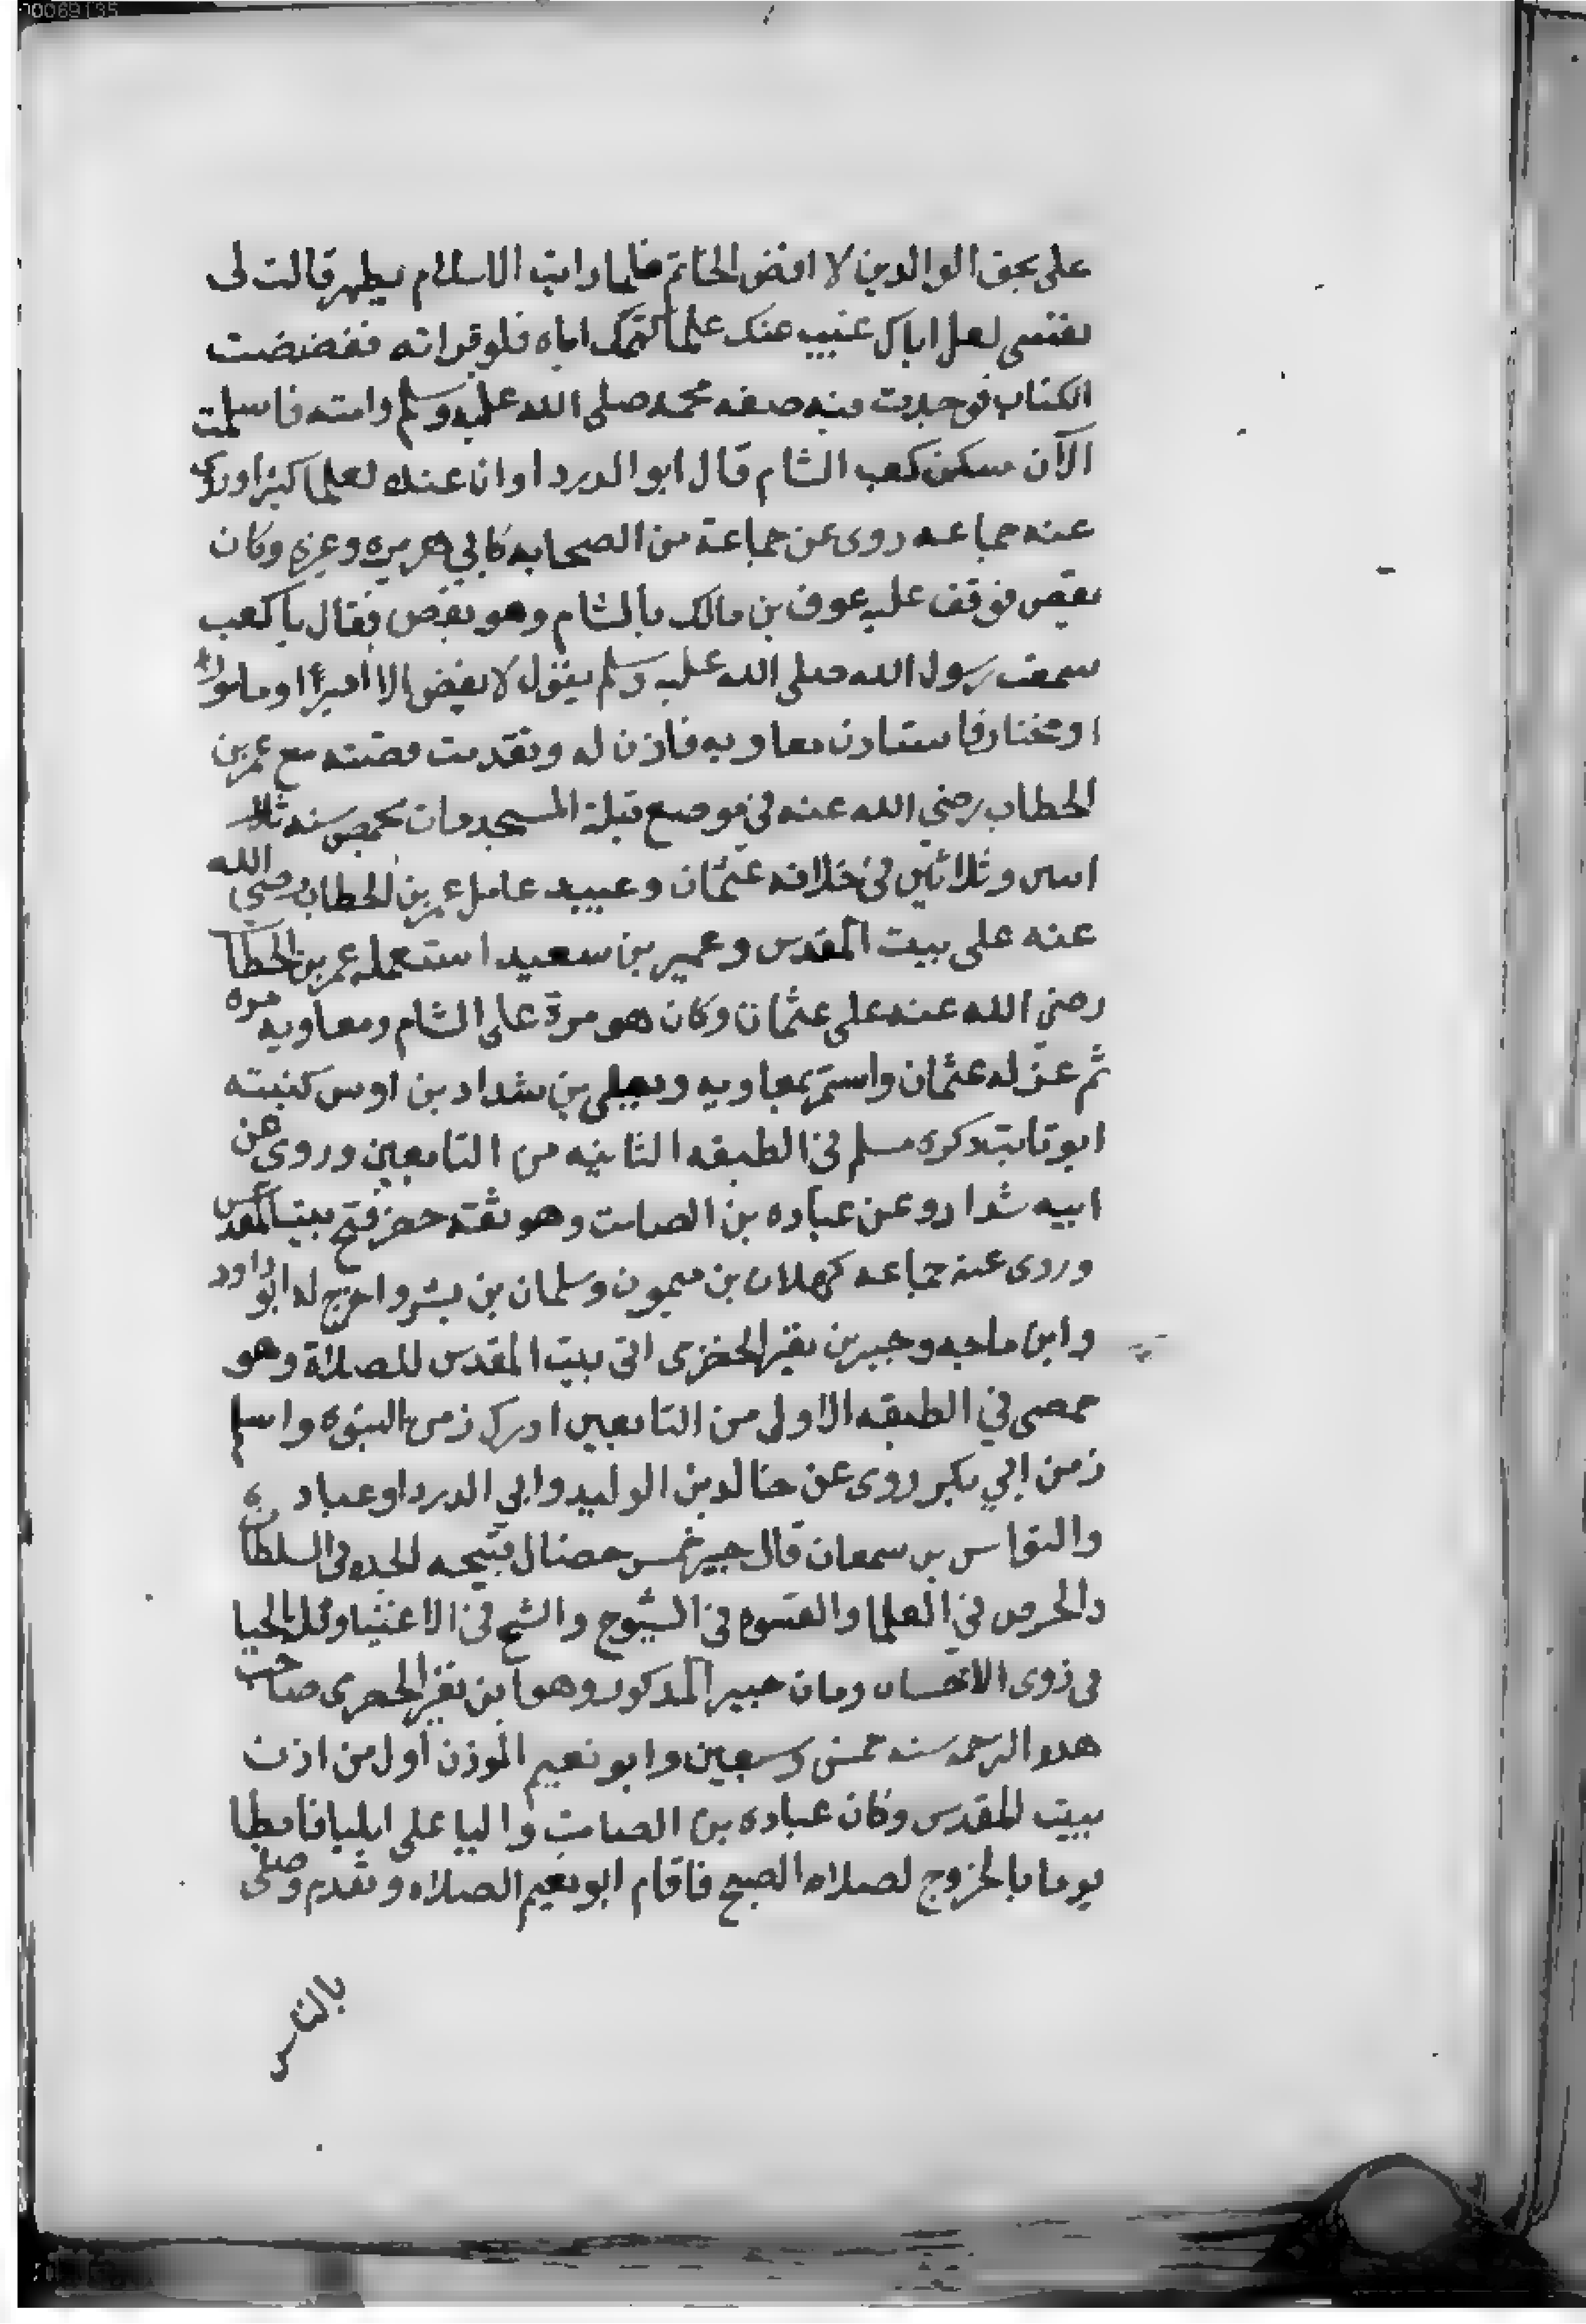 00069135
على بحق الوالدين لا افض الخاتم فلما رايت الاسلام يظهر قالت لى
نفسى لعل اباك غيب عنك علما كتمك اياه فلو قراته ففضضت
الكتاب فوجدت فيه صفه محمد صلى الله عليه وسلم وامته فاسلمت
الآن سكن كعب الشام قال ابو الدردا وان عنده لعلما كثيرا وروى
عنه جماعه روى عن جماعة من الصحابه كابي هريره وغيره وكان
يقص فوقف عليه عوف بن مالك بالشام وهو يقص فقال يا كعب
سمعت رسول الله صلى الله عليه وسلم يقول لا يقص الا أميرأ او مامور
او مختار فاستاذن معاويه فاذن له وتقدمت قصته مع عمر بن
الخطاب رضي الله عنه في موضع قبلة المسجد مات بحمص سنه ثلاث
اسن وثلاثين في خلافه عثمان وعبيد عامل عمر بن الخطاب رضي الله
عنه على بيت المقدس وعمير بن سعيد استعمله عمر بن الخطاب
رضي الله عنه على عثمان وكان هو مرة على الشام ومعاويه مره
ثم عزله عثمان واستمر بمعاويه ويعلى بن شداد بن اوس كنيته
ابو ثابت ذكره مسلم في الطبقه الثانيه من التابعين وروى عن
ابيه شداد وعن عباده بن الصامت وهو ثقه حضر فتح بيت المقدس
وروى عنه جماعه كهلال بن ميمون وسلمان بن بشر واخرج له ابو داود
وابن ماجه وجبير بن نفير الحضرى اتى بيت المقدس للصلاة وهو
حمصى في الطبقه الاولى من التابعين ادرك زمن النبوه واسلم
زمن ابي بكر روى عن خالد بن الوليد وابي الدردا وعباده
والنواس بن سمعان قال جبير خمس خصال قبيحه الحده في السلطان
والحرص في العلما والفسوه في الشيوخ والشح في الاغنيا وقلة الحيا
في ذوى الاحساب ومات جبير المذكور وهو ابن نفير الحضرى صاحب
هده الترجمه سنه خمس وسبعين وابو نعيم الموذن أول من اذن
ببيت المقدس وكان عباده بن الصامت واليا على ايليا فابطا
يوما بالخروج لصلاه الصبح فاقام ابو نعيم الصلاه وتقدم وصلى
بالناس